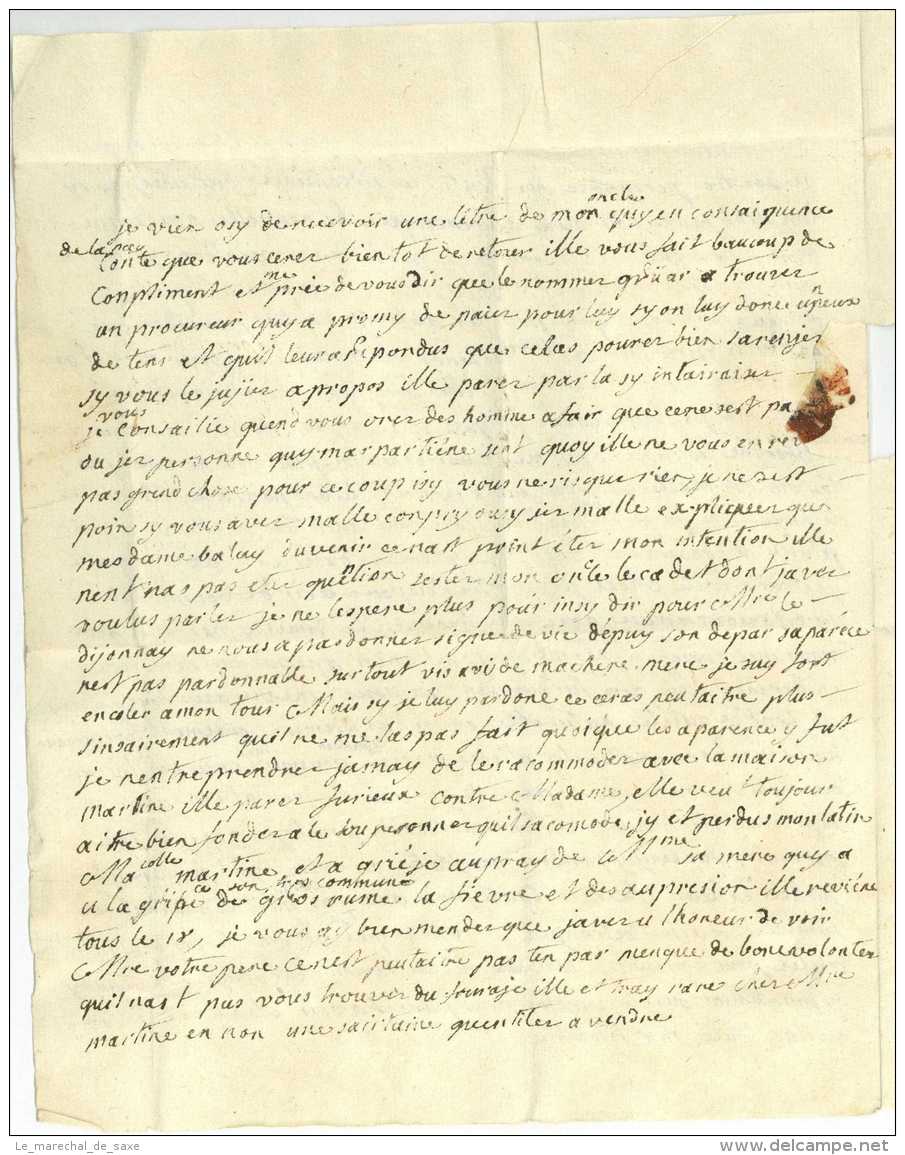 je vien osy de recevoir une létre de mon oncle quy en consaiquence
de la
conte que vous cerer bien tot de retour ille vous fait baucoup de
Conpliment et me priee de vous dir que le nommer a trouver
un procureur quy a promy de paier pour luy sy on luy donc un peux
de tens et quil leur a repondus que celas pourer bien sarenjer
sy vous le jujier a propos ille parer par la sy intairaiser
je vous Consailie quend vous orer des homme afair que cene sest pa
ou jer personne quy marpartiéne sest quoy ille ne vous en rer
pas grend chose pour ce coup isy vous ne risque rien, je ne sest
poin sy vous aver malle conpry ou sy jer malle expliquer que
mesdame balay duvenir ce nast point éter mon intention ille
nent nas pas eter quention sester mon oncle le cadet dont javer
voulus parler je ne lespere plus pour insy dir pour Mre le
dijonnay ne nous a pas donner signe de vie dépuy son depar sa parece
nest pas pardonnable surtout vis a vis de ma chere mere je suy fort
en coler a mon tour Mais sy je luy pardone ce ceras peutaitre plus
sinsairement quil ne me las pas fait quoique les aparence y fut
je nentreprendrer jamay de le racommoder avec la maison
martine ille parer furieux contre Madame, elle veut toujour
aitre bien fonder a le soupersonner quil sacomode, jy et perdus mon latin
Ma colle martine et a grieje aupray de Mme sa mère quy a
u la gripe ce son tres commune de gros rume la fievre et des aupresion ille reviene
tous le 18, je vous ay bien mender que javer u lhoneur de voir
Mre votre pere ce nest peutaitre pas ten par menque de bone volonter
quil nast pas vous trouver du fouraje ille et tray rare cher Mre
martine en non une sairtaine quentiter a vendre
Le_marechal_de_saxe
www.delcampe.net